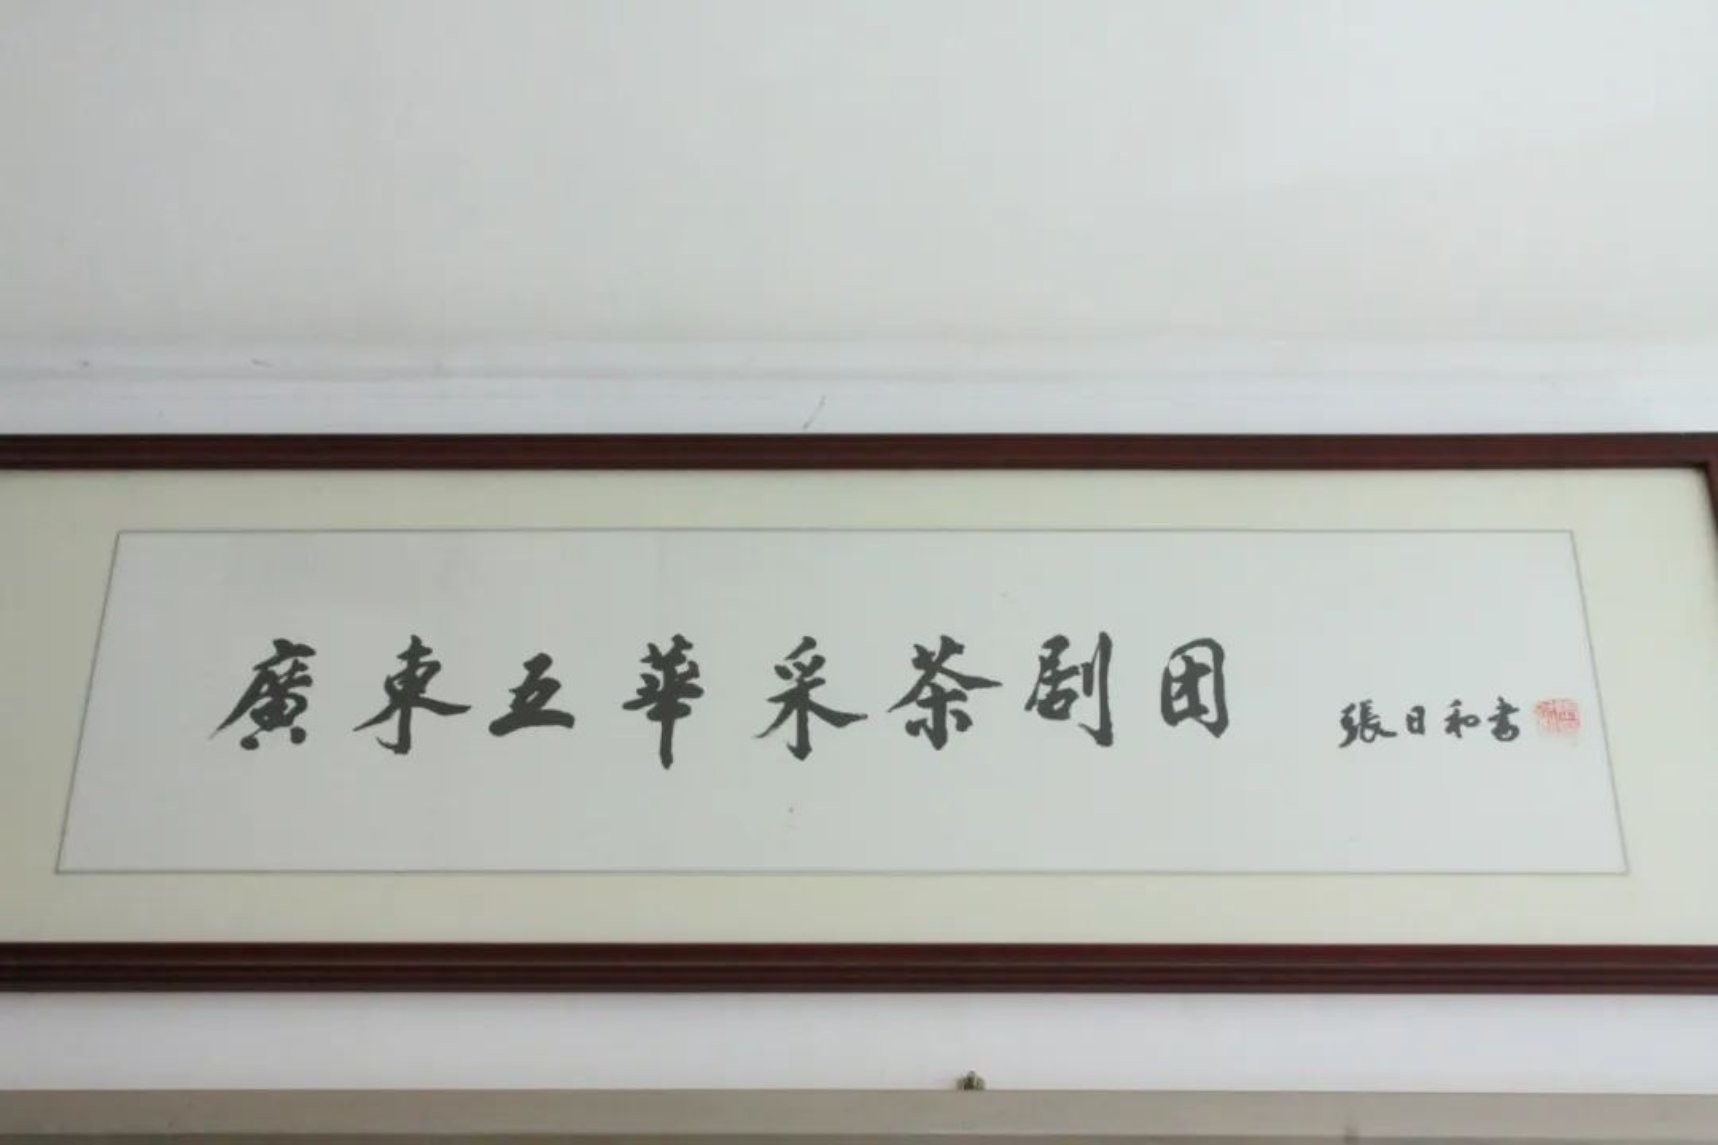 廣東五華采茶剧团
張日和書